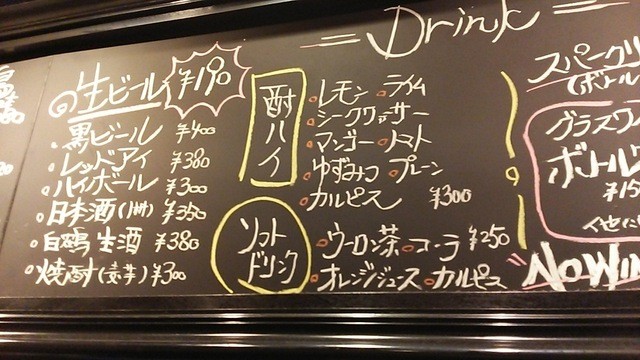 Drink
生ビール ¥190
黒ビール ¥400
レッドアイ ¥380
ハイボール ¥300
日本酒(冊) ¥350
白鶴 生酒 ¥380
焼酎(麦・芋) ¥300
酎ハイ
レモン ライム
シークヮーサー
マンゴー トマト
ゆずみつ プレーン
カルピス ¥300
ソフトドリンク
ウーロン茶 コーラ ¥250
オレンジジュース カルピス
スパークリ
(ボトル
グラスワイ
ボトルワ
¥15
NoWin